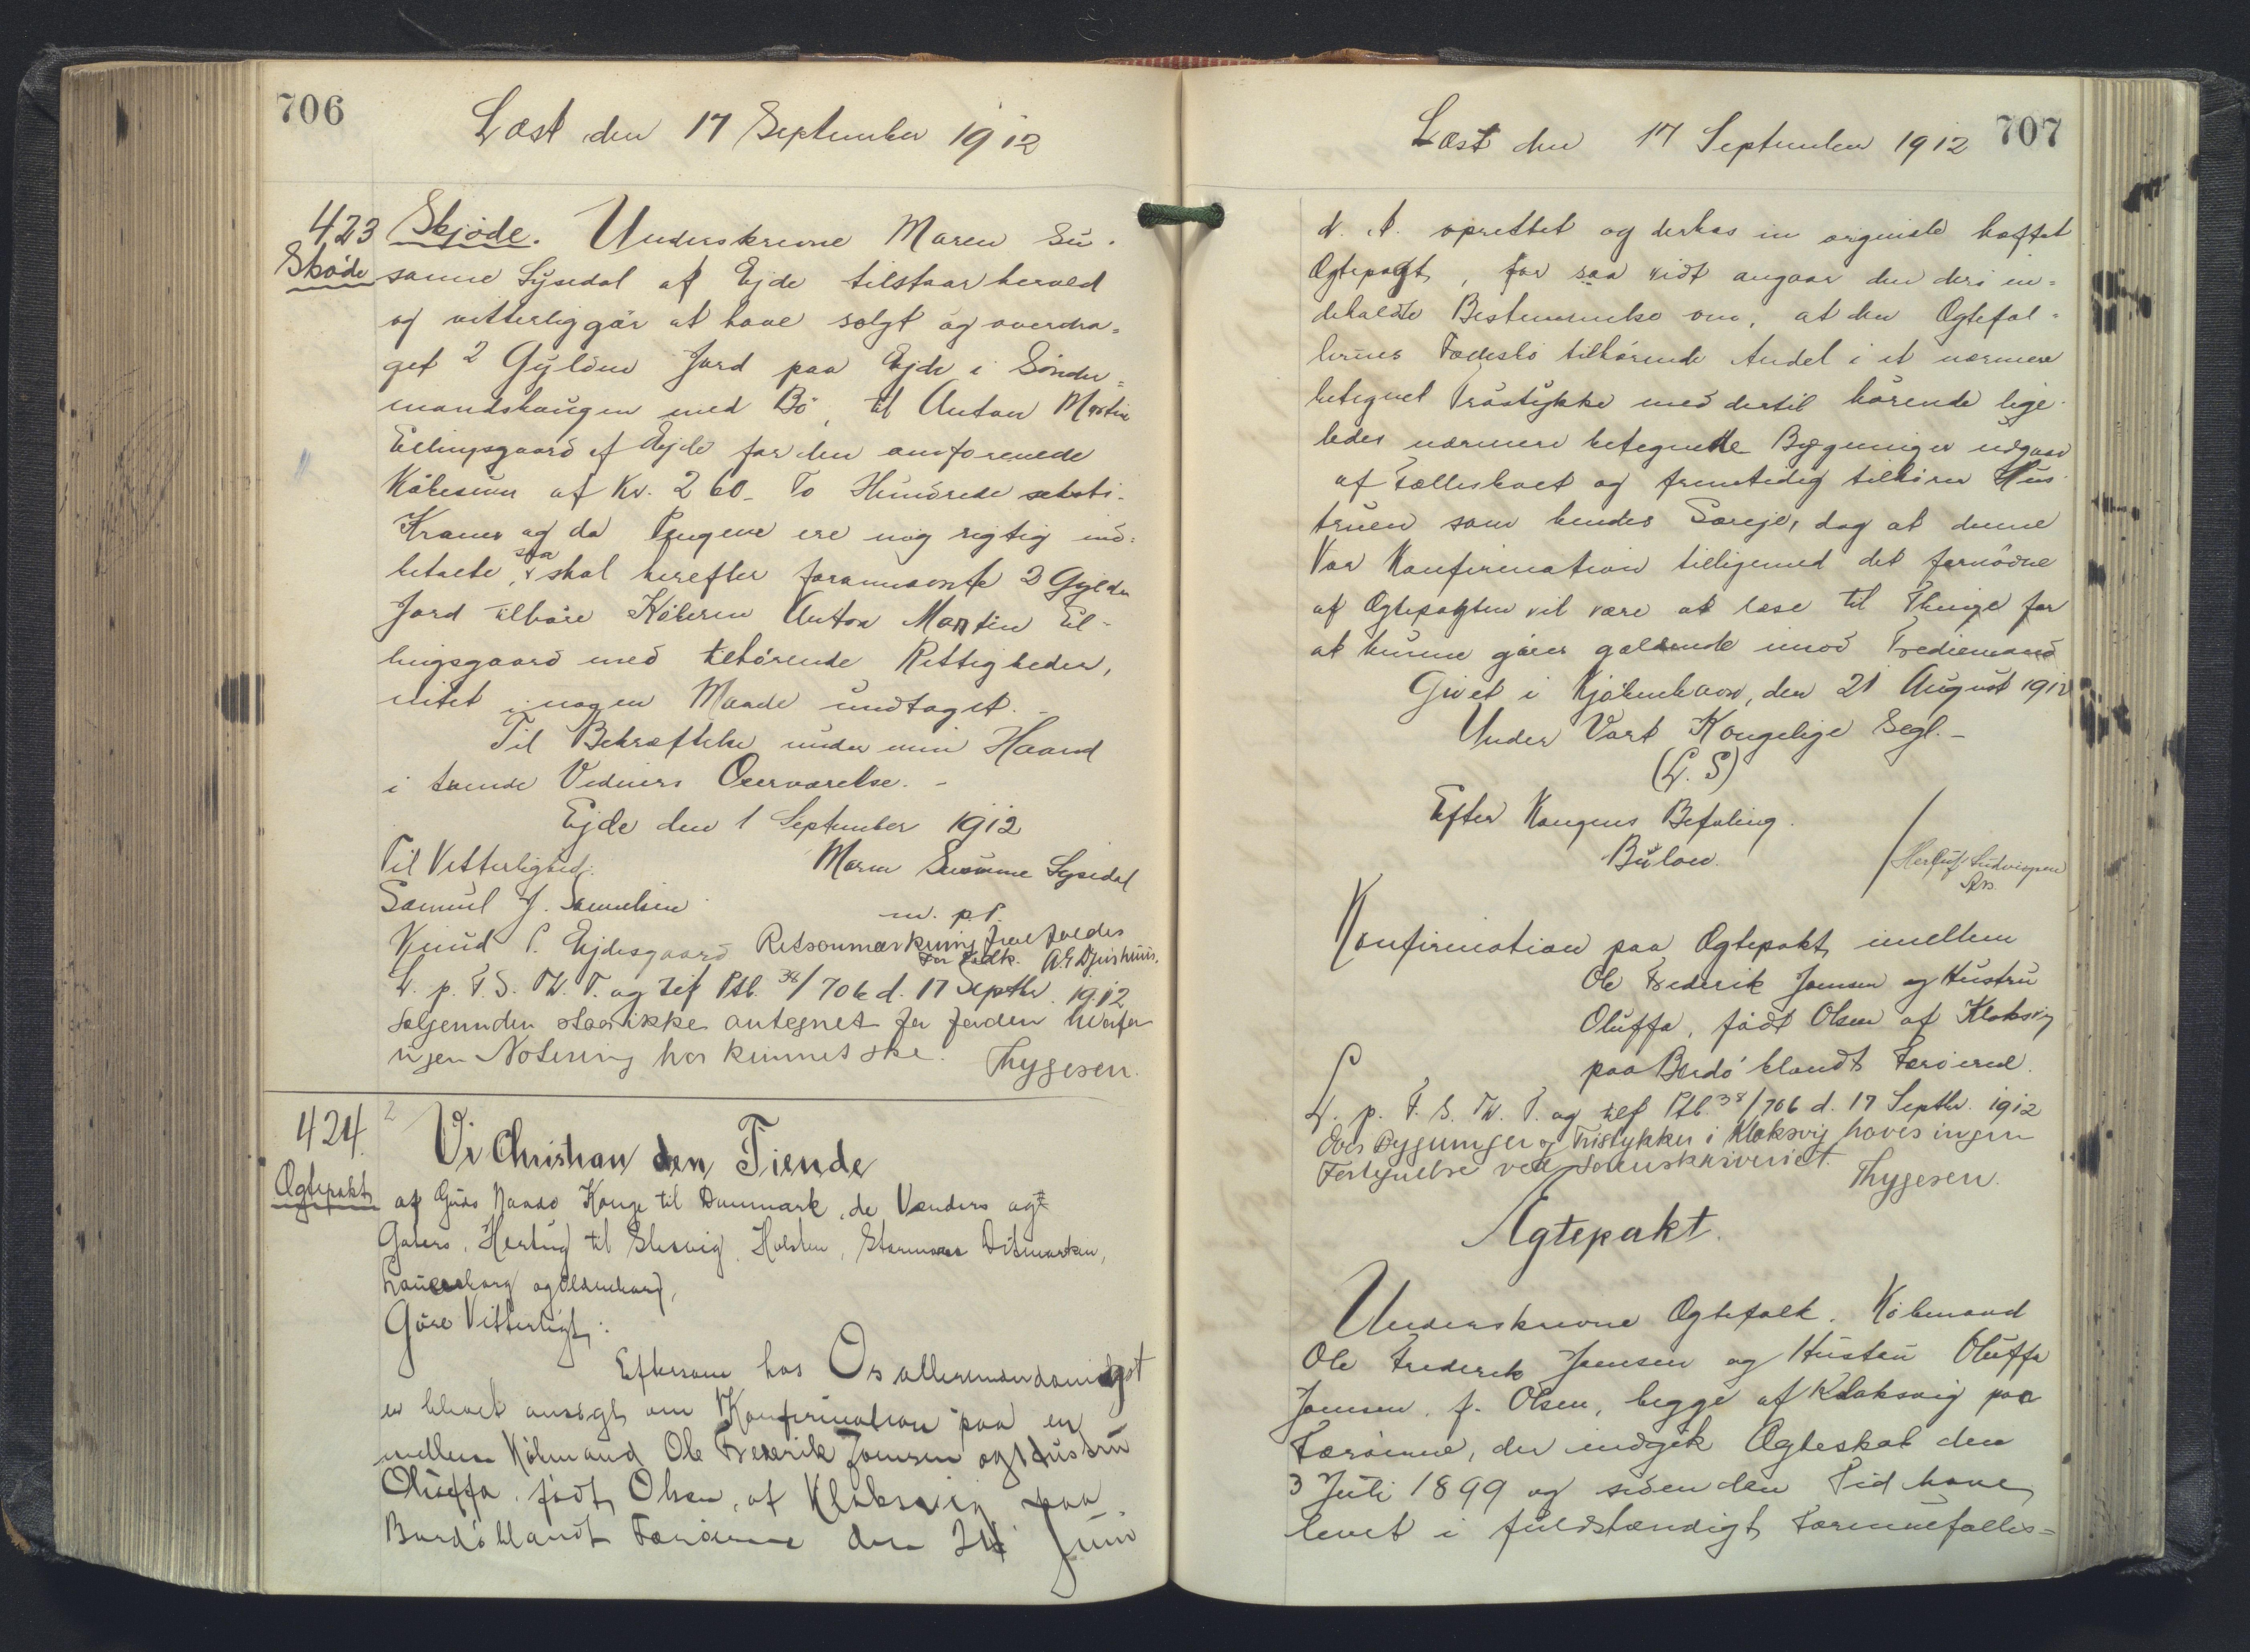 706
Læst den 17 September 1912
423 Skjøde. Underskrevne Maren Su-
Skøde sanne Lysedal af Ejde tilstaar herved
og vitterliggør at have solgt og overdra=
get 2 Gylden Jord paa Ejde i Sønder=
mandshaugen med Bø, til Anton Martin
Ellingsgaard af Ejde for den omforenede
Købesum af Kr. 260_ To Hundrede seksti-
Kroner og da Pengene ere mig rigtig ind=
betalte, saa skal herefter forannævnte 2 Gylden
Jord tilhøre Køberen Anton Martin El-
lingsgaard med tilhørende Rettigheder,
intet i nogen Maade undtaget. -
Til Bekræftelse under min Haand
i tvende Vidners Overværelse. -
Ejde den 1 September 1912
Til Vitterlighed: Maren Susanne Lysedal
Samuel J. Samuelsen m. p. P.
Knud P. Ejdesgaard Retsanmærkning frafaldes
For Kadk. A. E Djurhuus.
L. p. F. S. Th. T. og ref Ptb. 38/706 d. 17 Septbr. 1912
Sælgerinden staar ikke antegnet for Jorden hvorfor
ingen Notering har kunnet ske. Thygesen.
424. Vi Christian den Tiende
Ægtepakt af Guds Naade Konge til Danmark, de Venders og
Goters, Hertug til Slesvig, Holsten, Stormarn Ditmarsken,
Lauenborg og Oldenborg,
Gøre Vitterligt:
Eftersom hos Os allerunderdanigst
er blevet ansøgt om Konfirmation paa en
mellem Købmand Ole Frederik Joensen og Hustru
Oluffa, født Olsen, af Klaksvig paa
Bordø blandt Færøerne den 24 Juni
707
Læst den 17 September 1912
d. A. oprettet og derhos in originale hæftet
Ægtepagt, for saa vidt angaar den deri in=
deholdte Bestemmelse om, at den Ægtefol=
kenes Fællesbo tilhørende Andel i et nærmere
betegnet Trøstykke med dertil hørende lige-
ledes nærmere betegnede Bygninger udgaar
af Fælleskaet og fremtidig tilhører Hus-
truen som hendes Særeje, dog at denne
Vor Konfirmation tilligemed det fornødne
af Ægtepagten vil være at læse til Thinge for
at kunne gøres gældende imod Trediemand
Givet i Kjøbenhavn, den 21 August 1912
Under Vort Kongelige Segl. -
(L. S)
Efter Kongens Befaling.
Bülow. / Herluf Ludvigsen
Konfirmation paa Ægtepakt imellem
Ole Frederik Joensen og Hustru
Oluffa, født Olsen af Klaksvig
paa Bordø blandt Færøerne.
L. p. F. S. Th. T. og ref Ptb. 38/706 d. 17 Septbr. 1912
Over Bygninger og Tristykker i Klaksvig haves ingen
Fortegnelse ved Sorenskriveriet. Thygesen.
Ægtepakt.
Underskrevne Ægtefolk. Købmand
Ole Frederik Joensen og Hustru Oluffa
Joensen, f. Olsen, begge af Klaksvig paa
Færøerne, der indgik Ægteskab den
3 Juli 1899 og siden den Tid have
levet i fuldstændigt Formuefælles=